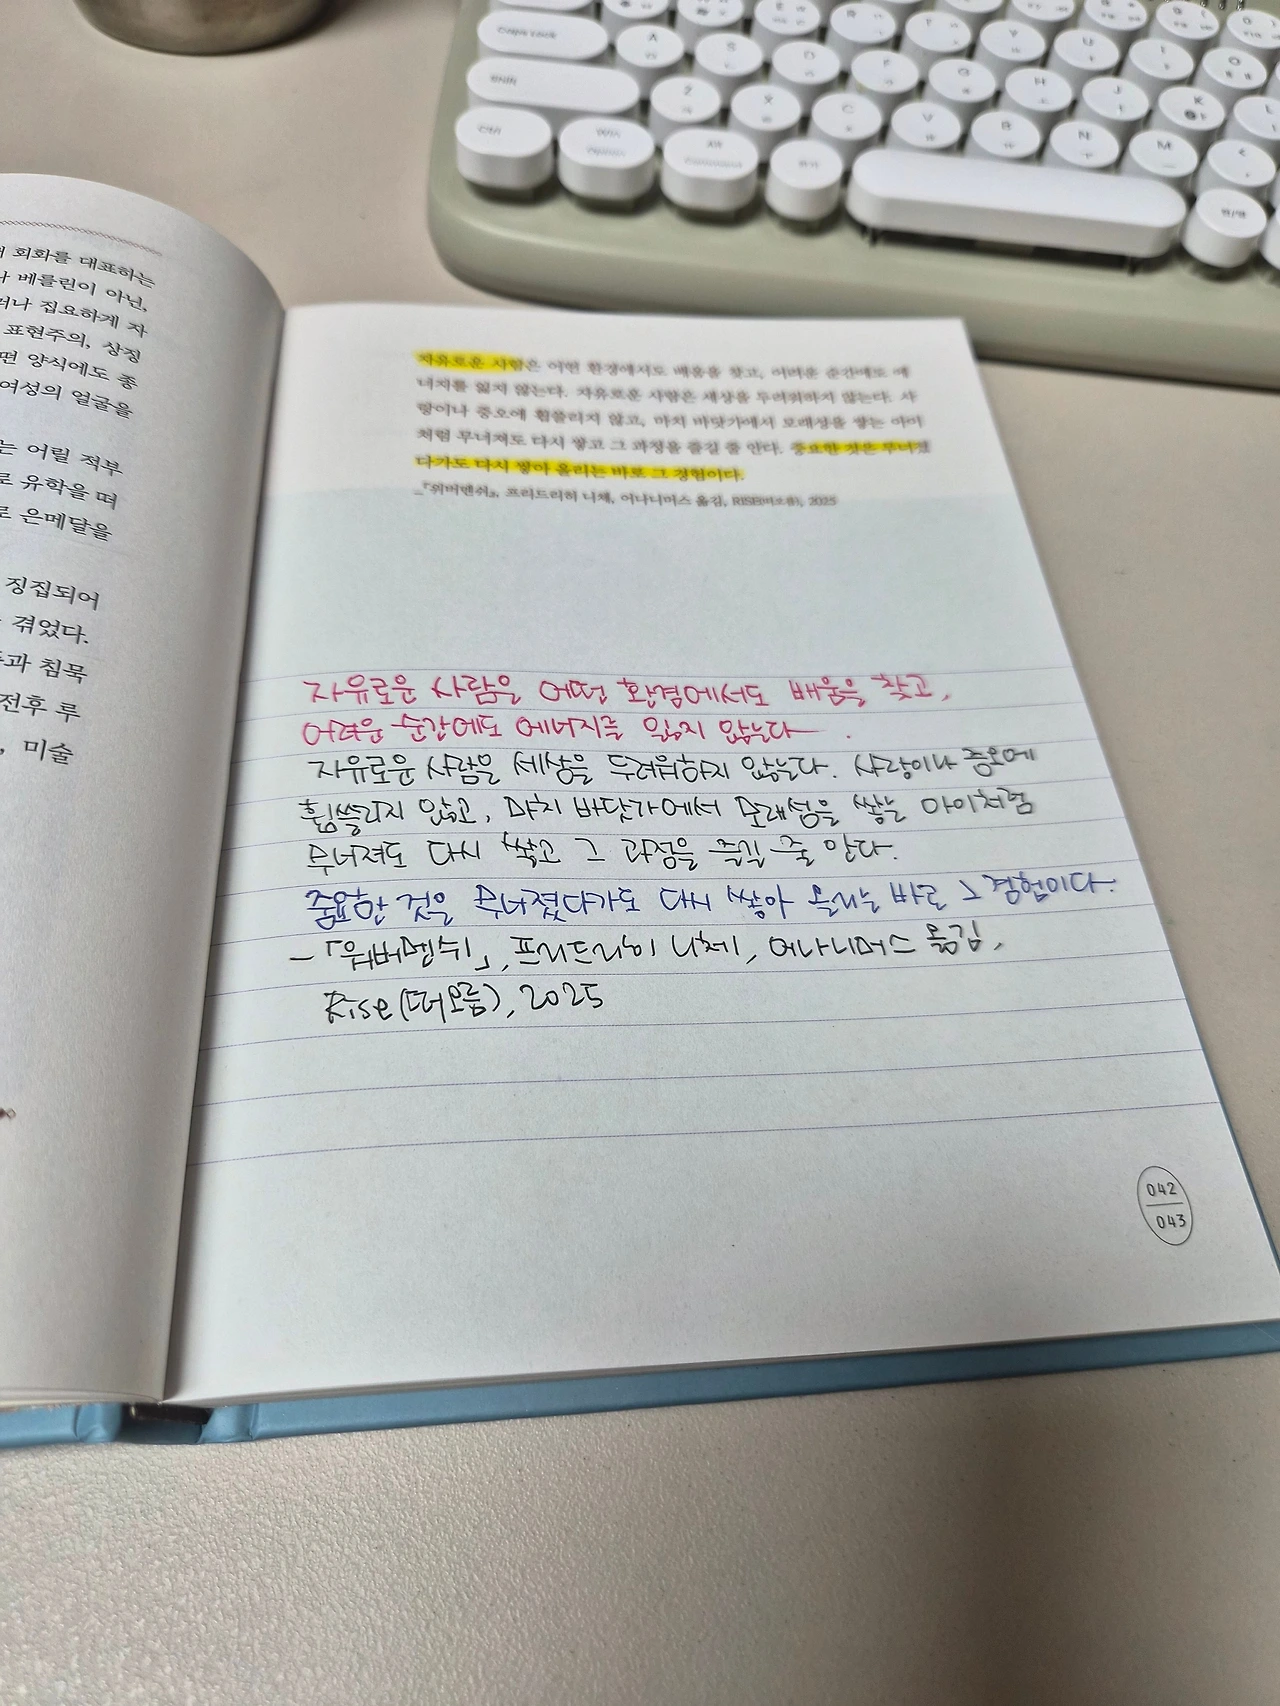 회화를 대표하는
베를린이 아닌,
집요하게 자
표현주의, 상징
양식에도 종
여성의 얼굴을
는 어릴 적부
로 유학을 떠
로 은메달을
징집되어
겪었다.
과 침묵
전후 루
, 미술
자유로운 사람은 어떤 환경에서도 배움을 찾고, 어려운 순간에도 에
너지를 잃지 않는다. 자유로운 사람은 세상을 두려워하지 않는다. 사
랑이나 증오에 휩쓸리지 않고, 마치 바닷가에서 모래성을 쌓는 아이
처럼 무너져도 다시 쌓고 그 과정을 즐길 줄 안다. 중요한 것은 무너졌
다가도 다시 쌓아 올리는 바로 그 경험이다.
_『위버멘쉬』, 프리드리히 니체, 어나니머스 옮김, RISE(떠오름), 2025
자유로운 사람은 어떤 환경에서도 배움을 찾고,
어려운 순간에도 에너지를 잃지 않는다.
자유로운 사람은 세상을 두려워하지 않는다. 사랑이나 증오에
휩쓸리지 않고, 마치 바닷가에서 모래성을 쌓는 아이처럼
무너져도 다시 쌓고 그 과정을 즐길 줄 안다.
중요한 것은 무너졌다가도 다시 쌓아 올리는 바로 그 경험이다.
-『위버멘쉬』, 프리드리히 니체, 어나니머스 옮김,
Rise(떠오름), 2025
042
043
Caps Lock
A
S
D
F
G
H
J
K
L
Shift
Z
X
C
V
B
N
M
Ctrl
Win
Option
Alt
Command
한/영